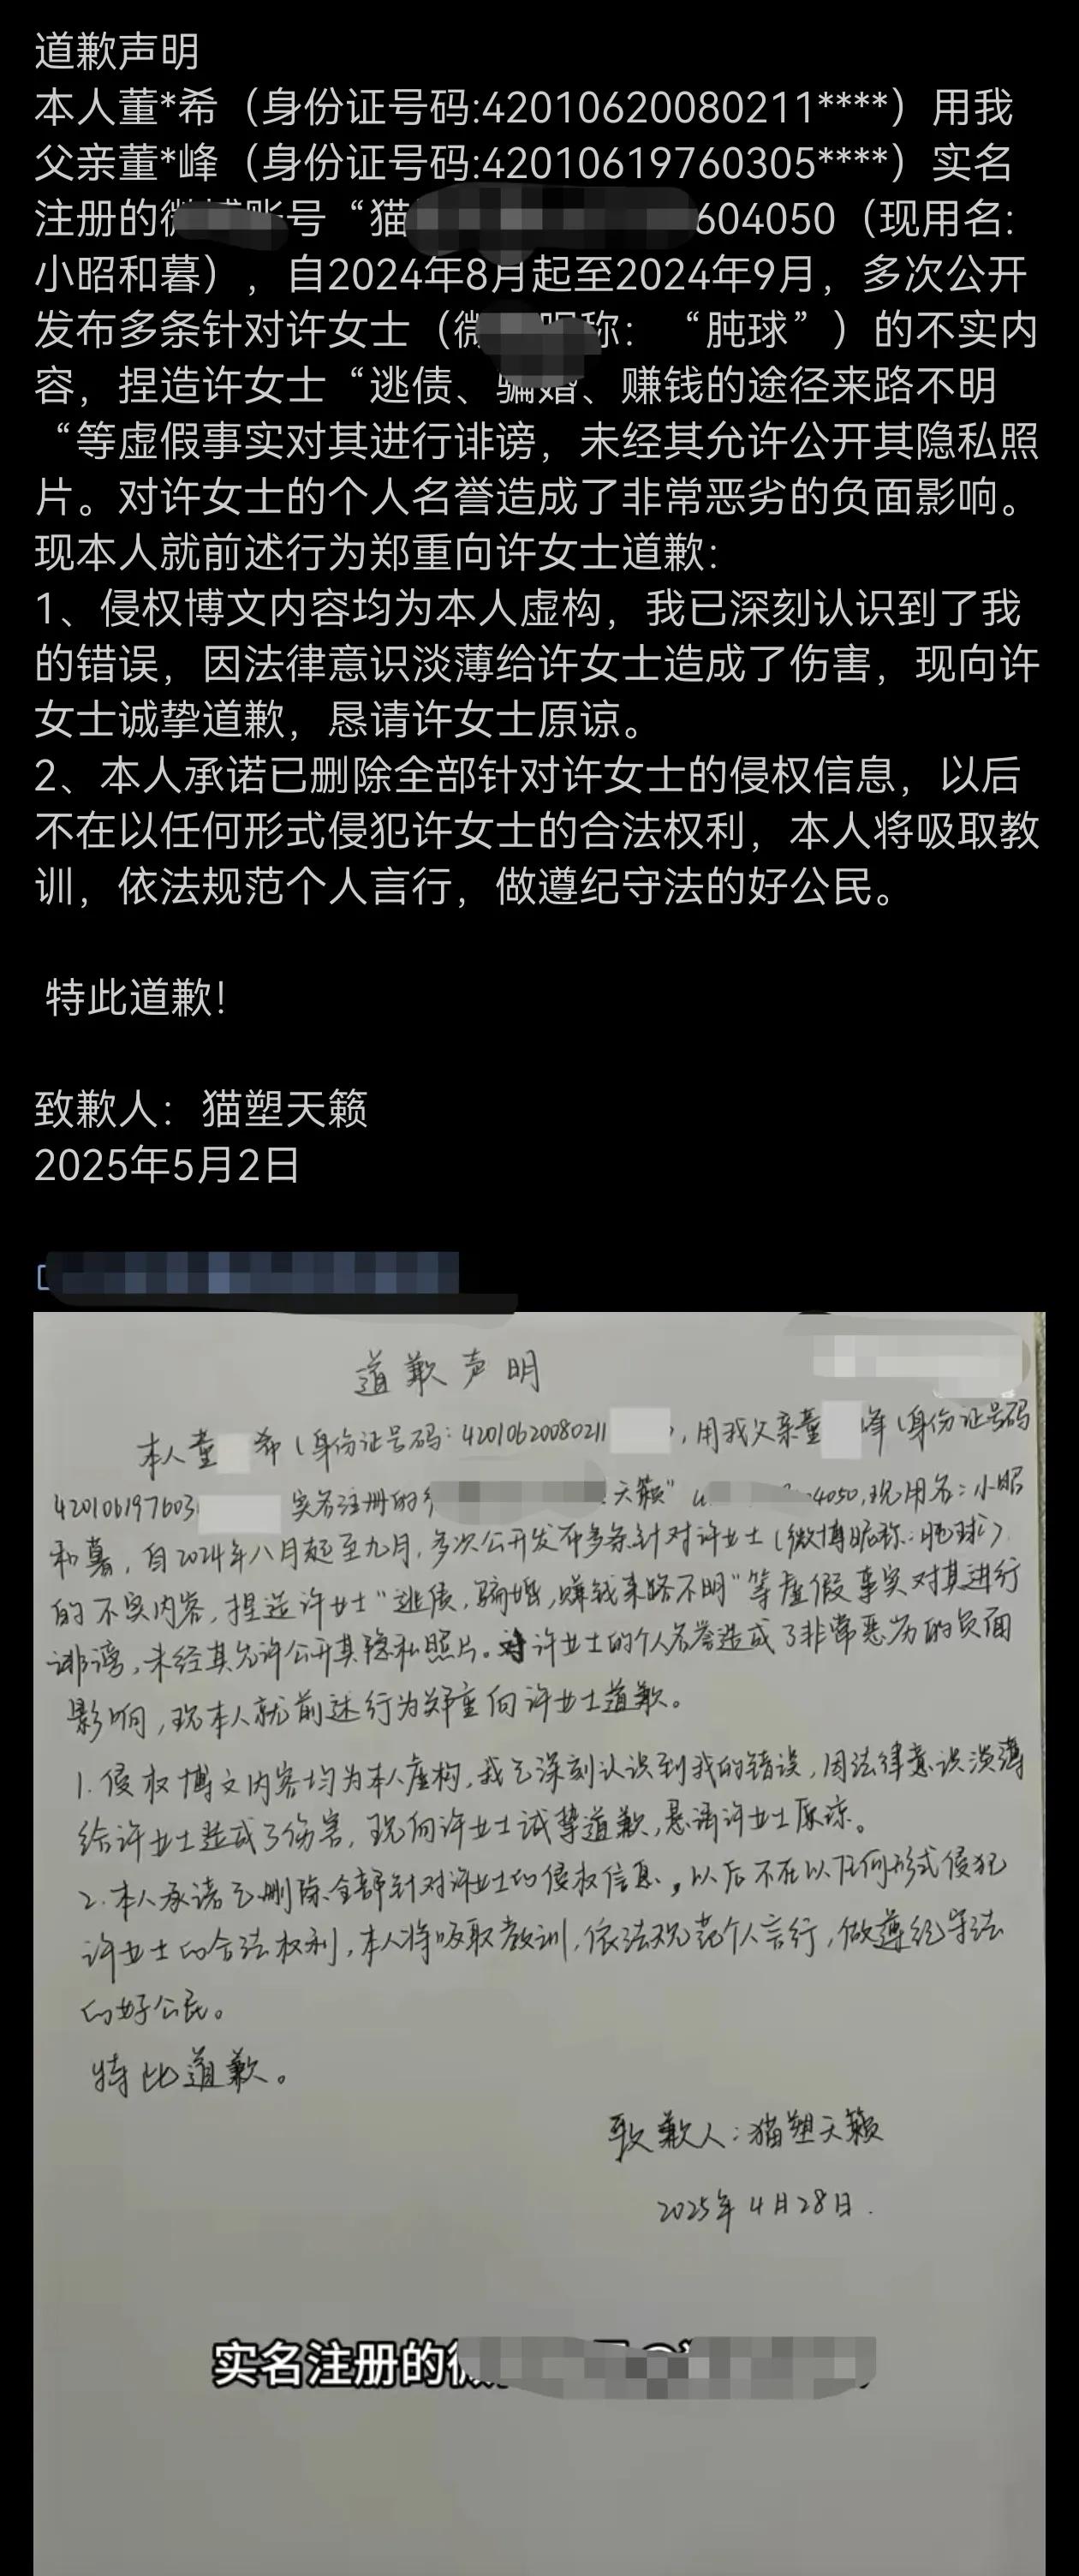 道歉声明
本人董*希（身份证号码:42010620080211****）用我
父亲董*峰（身份证号码:42010619760305****）实名
注册的 号“猫 604050（现用名:
小昭和暮），自2024年8月起至2024年9月，多次公开
发布多条针对许女士（微 称：“肫球”）的不实内
容，捏造许女士“逃债、骗婚、赚钱的途径来路不明
“等虚假事实对其进行诽谤，未经其允许公开其隐私照
片。对许女士的个人名誉造成了非常恶劣的负面影响。
现本人就前述行为郑重向许女士道歉:
1、侵权博文内容均为本人虚构，我已深刻认识到了我
的错误，因法律意识淡薄给许女士造成了伤害，现向许
女士诚挚道歉，恳请许女士原谅。
2、本人承诺已删除全部针对许女士的侵权信息，以后
不在以任何形式侵犯许女士的合法权利，本人将吸取教
训，依法规范个人言行，做遵纪守法的好公民。
特此道歉!
致歉人：猫塑天籁
2025年5月2日
道歉声明
本人董 希(身份证号码:42010620080211 ),用我父亲董 峰(身份证号码
420106197603 实名注册的 天籁" 4050,现用名:小昭
和暮,自2024年八月起至九月,多次公开发布多条针对许女士(微博昵称:肫球)
的不实内容,捏造许女士"逃债,骗婚,赚钱来路不明"等虚假事实对其进行
诽谤,未经其允许公开其隐私照片。对许女士的个人名誉造成了非常恶劣的负面
影响,现本人就前述行为郑重向许女士道歉。
1.侵权博文内容均为本人虚构,我已深刻认识到我的错误,因法律意识淡薄
给许女士造成了伤害,现向许女士诚挚道歉,恳请许女士原谅。
2.本人承诺已删除全部针对许女士的侵权信息,以后不在以任何形式侵犯
许女士的合法权利,本人将吸取教训,依法规范个人言行,做遵纪守法
的好公民。
特此道歉。
致歉人:猫塑天籁
2025年4月28日.
实名注册的